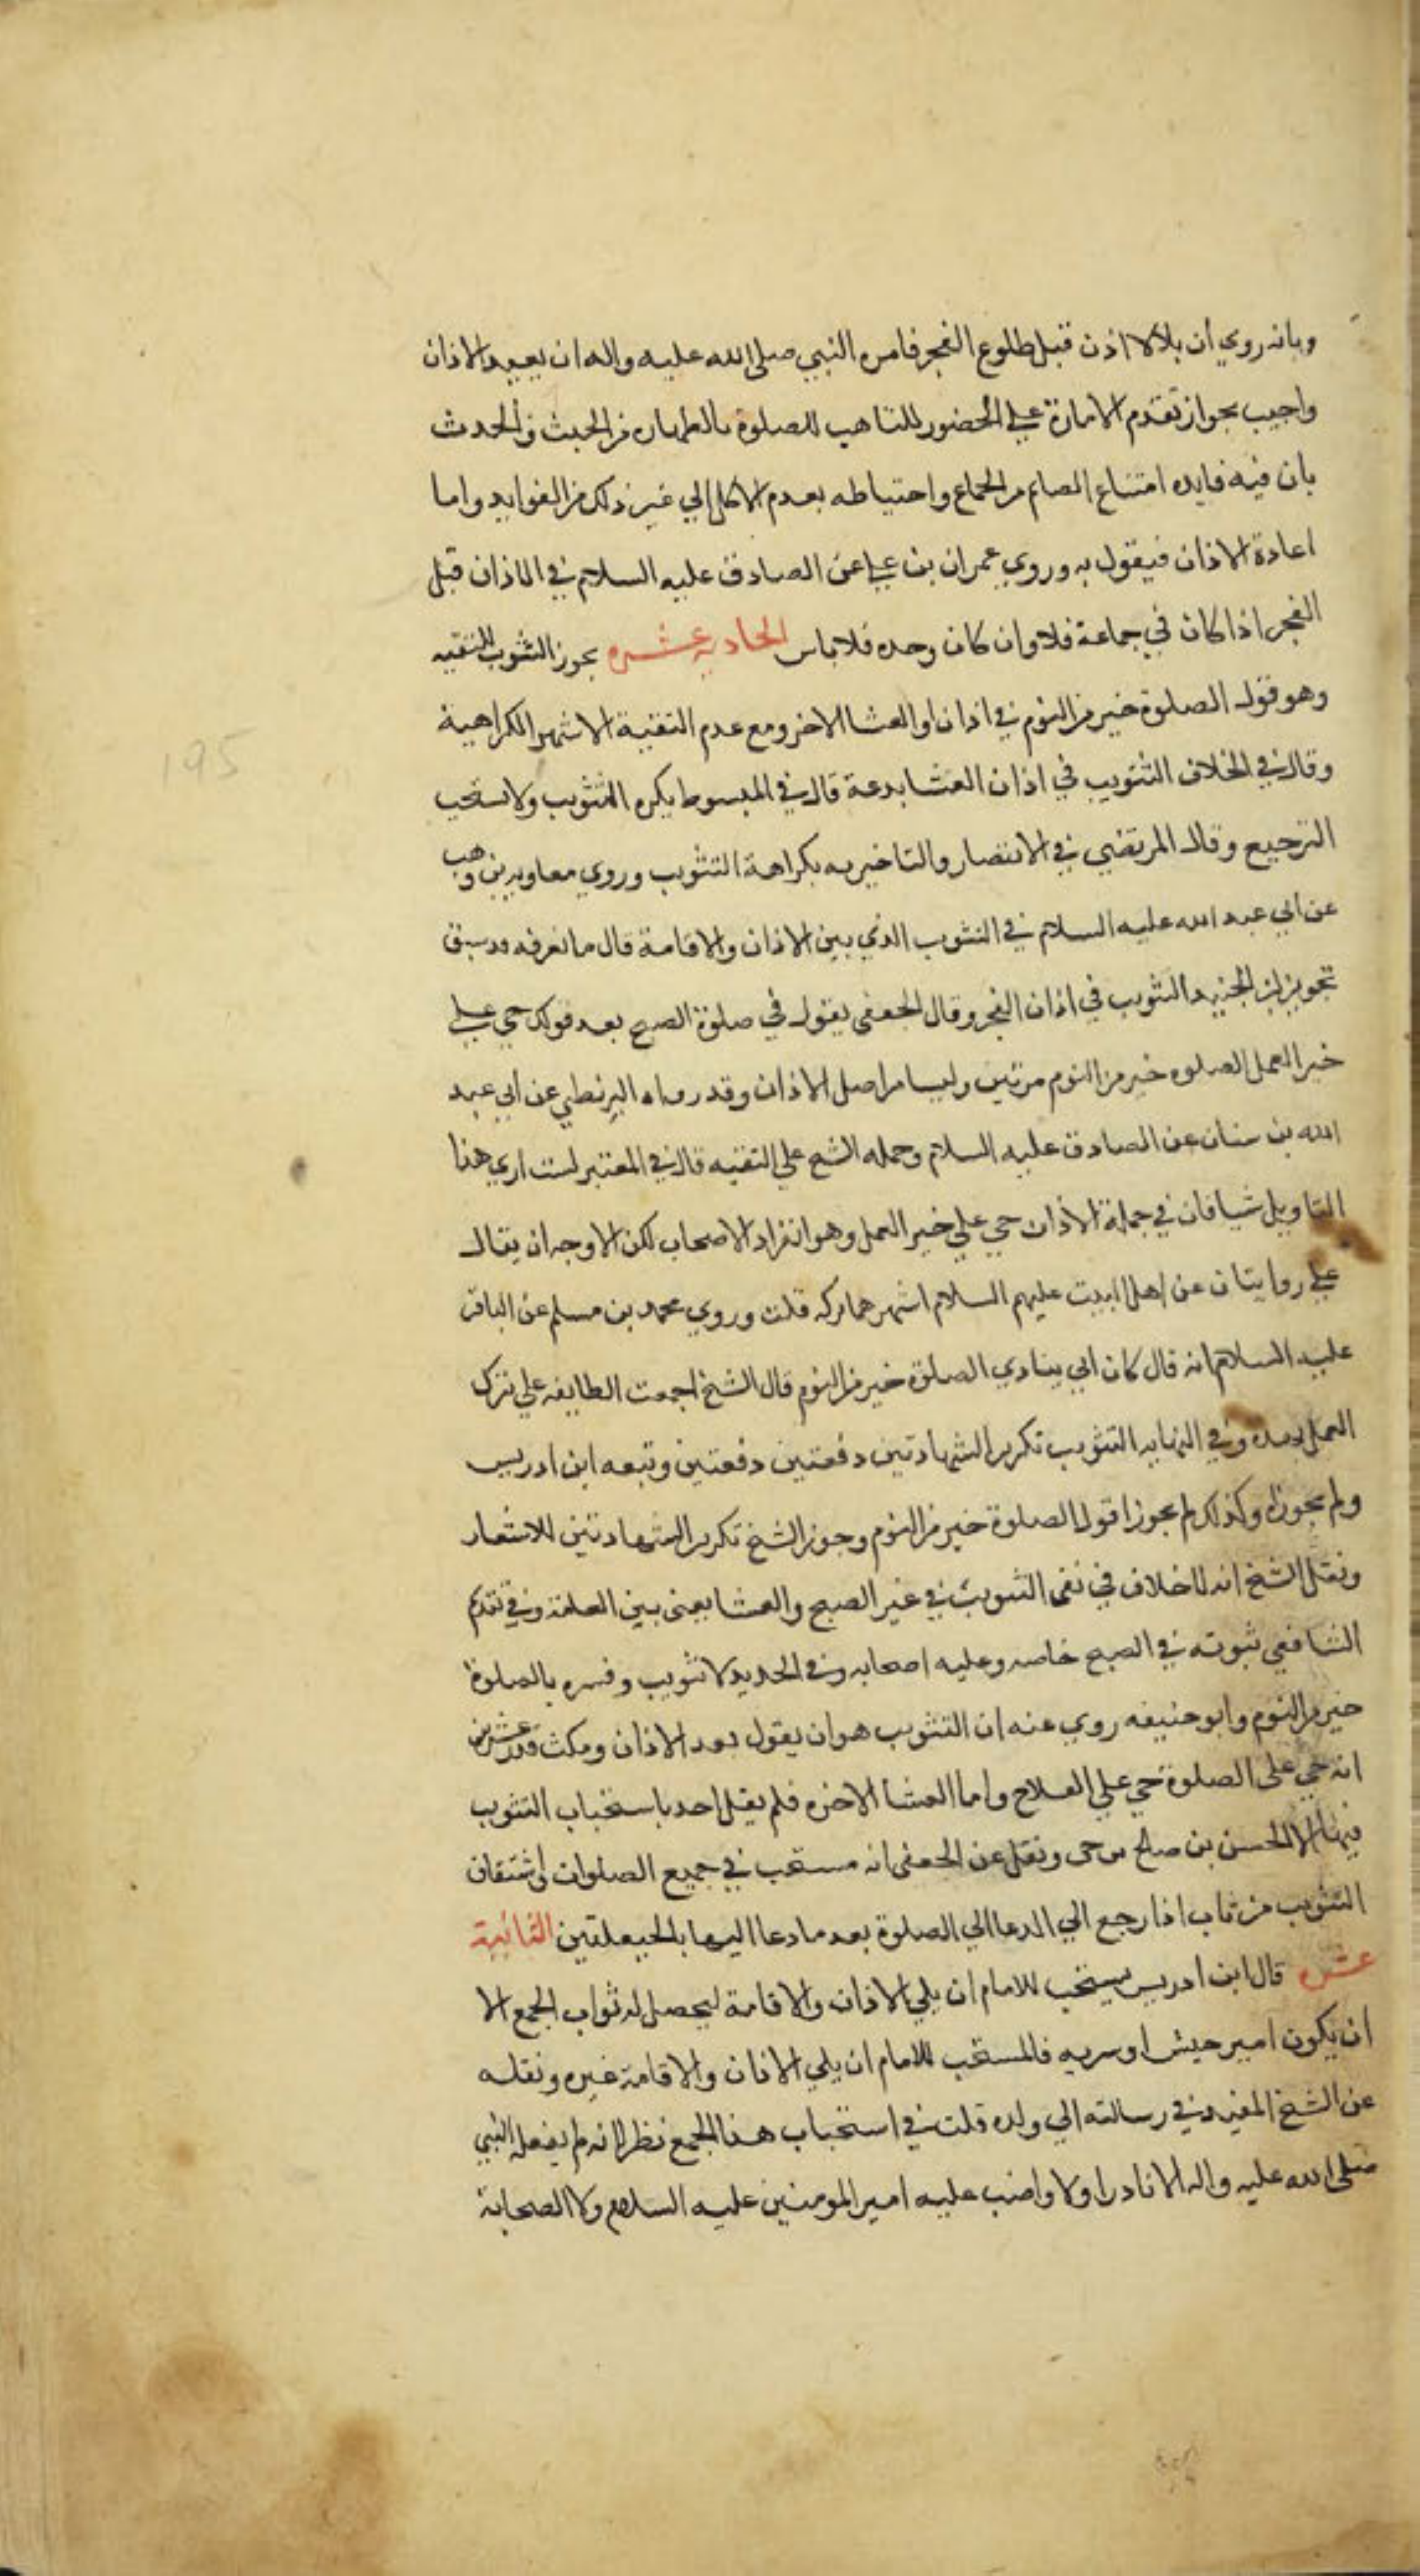 وبانه روي ان بلالا اذن قبل طلوع الفجر فامره النبي صلى الله عليه واله ان يعيد الاذان
واجيب بجواز تقدم الامارة علي الحضور للتاهب للصلوة بالطهاره من الخبث والحدث
بان فيه فايده امتناع الصايم من الجماع واحتياطه بعدم الاكل الي غير ذلك من الفوايد واما
اعادة الاذان فيقول به وروي عمران بن علي عن الصادق عليه السلام في الاذان قبل
الفجر اذا كان في جماعة فلا وان كان وحده فلاباس الحاديه عشره يجوز التثويب للتقيه
وهو قول الصلوة خير من النوم في اذان او العشا الاخر ومع عدم التقية الاشهر الكراهية
وقال في الخلاف التثويب في اذان العشا بدعة قال في المبسوط يكره التثويب ولا يستحب
الترجيع وقال المرتضي في الانتصار والناصريه بكراهة التثويب وروي معاويه بن وهب
عن ابي عبد الله عليه السلام في التثويب الذي بين الاذان والاقامة قال ما نعرفه وسبق
تجويز ابن الجنيد التثويب في اذان الفجر وقال الجعفي يقول في صلوة الصبح بعد قولك حي علي
خير العمل الصلوه خير من النوم مرتين وليسا من اصل الاذان وقد رواه البزنطي عن ابي عبد
الله بن سنان عن الصادق عليه السلام وحمله الشيخ علي التقيه قال في المعتبر لست اري هذا
التاويل شيا فان في جملة الاذان حي علي خير العمل وهو انفراد الاصحاب لكن الاوجه ان يقال
علي روايتان عن اهل البيت عليهم السلام اشهرهما تركه قلت وروي محمد بن مسلم عن الباقر
عليه السلام انه قال كان ابي ينادي الصلوة خير من النوم قال الشيخ اجمعت الطايفه علي ترك
العمل بهذه وفي النهايه التثويب تكرير الشهادتين دفعتين دفعتين وتبعه ابن ادريس
ولم يجوزاه وكذلك لم يجوزا قول الصلوة خير من النوم وجوز الشيخ تكرير الشهادتين للاشعار
ونقل الشيخ انه لا خلاف في نفي التثويب في غير الصبح والعشا يعني بين العامة وفي قديم
الشافعي ثبوته في الصبح خاصه وعليه اصحابه وفي الجديد لا تثويب وفسره بالصلوة
خير من النوم وابو حنيفه روي عنه ان التثويب هو ان يقول بعد الاذان ومكث قدر عشرين
انه حي على الصلوة حي علي الفلاح واما العشا الاخره فلم يقل احد باستحباب التثويب
فيها الا الحسن بن صالح بن حي ونقل عن الجعفي انه مستحب في جميع الصلوات واشتقاق
التثويب من ثاب اذا رجع الي الدعا الي الصلوة بعد ما دعا اليها بالحيعلتين الثانية
عشره قال ابن ادريس يستحب للامام ان يلي الاذان والاقامة ليحصل له ثواب الجمع الا
ان يكون امير جيش او سريه فالمستحب للامام ان يلي الاذان والاقامة غيره ونقله
عن الشيخ المفيد في رسالته الي ولده قلت في استحباب هذا الجمع نظر لانه لم يفعله النبي
صلى الله عليه واله الا نادرا ولا واضب عليه امير المومنين عليه السلام ولا الصحابة
195